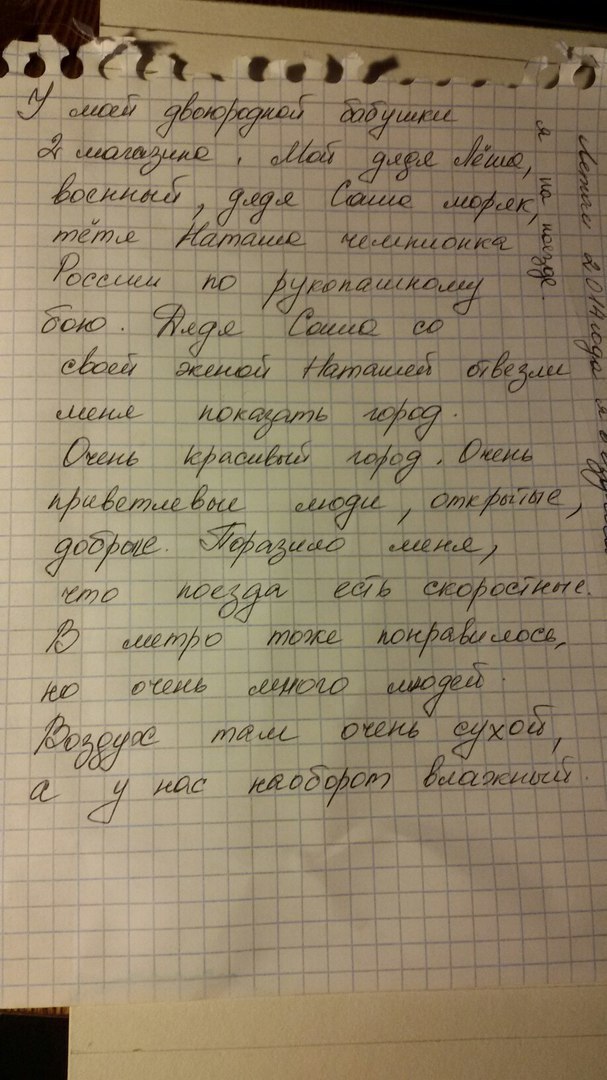 У моей двоюродной бабушки
2 магазина. Мой дядя Лёша,
военный, дядя Саша моряк,
тётя Наташа чемпионка
России по рукопашному
бою. Дядя Саша со
своей женой Наташей отвезли
меня показать город.
Очень красивый город. Очень
приветлевые люди, открытые,
добрые. Поразило меня,
что поезда есть скоростные.
В метро тоже понравилось,
но очень много людей.
Воздух там очень сухой,
а у нас наоборот влажный.
Летом 2014 года я
я на поезде.